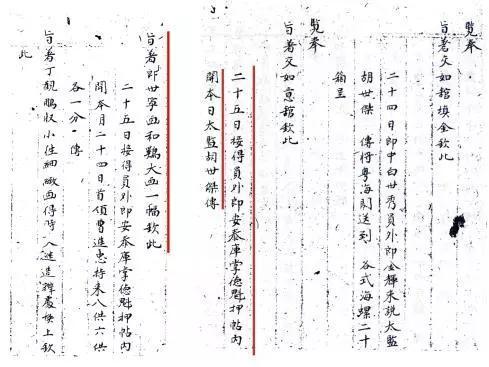 覽奉
旨著交如舘填金欽此
二十四日郎中白世秀員外郎金輝来說太監
胡世傑 傳將粤海関送到 各式海螺二十
箱呈
覽奉
旨著交如意舘欽此
二十五日接得員外郎安泰庫掌德魁押帖內
開本日太監胡世傑傳
旨著郎世寧画和鷄大画一幅欽此
二十五日接得員外郎安泰庫掌德魁押帖內
開本月二十四日首領曹進忠持来八供六供
各一分 傳
旨著丁觀鵬収小性細緻画得時入 造禪慶樓上欽
此